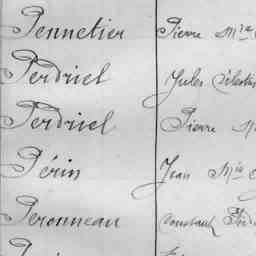 Pennetier Pierre Mie
Perdriel Jules Célestin
Perdriel Pierre M
Périn Jean Mie
Peronneau Constant